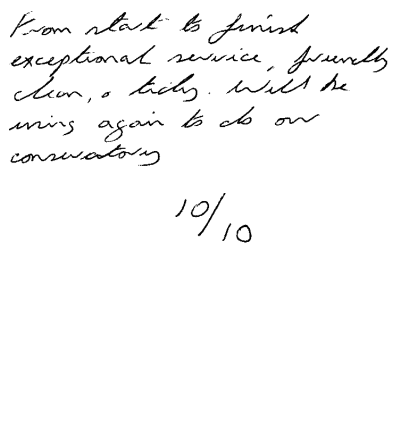 From start to finish
exceptional service, friendly
clean, & tidy. Will be
using again to do our
conservatory
10/10